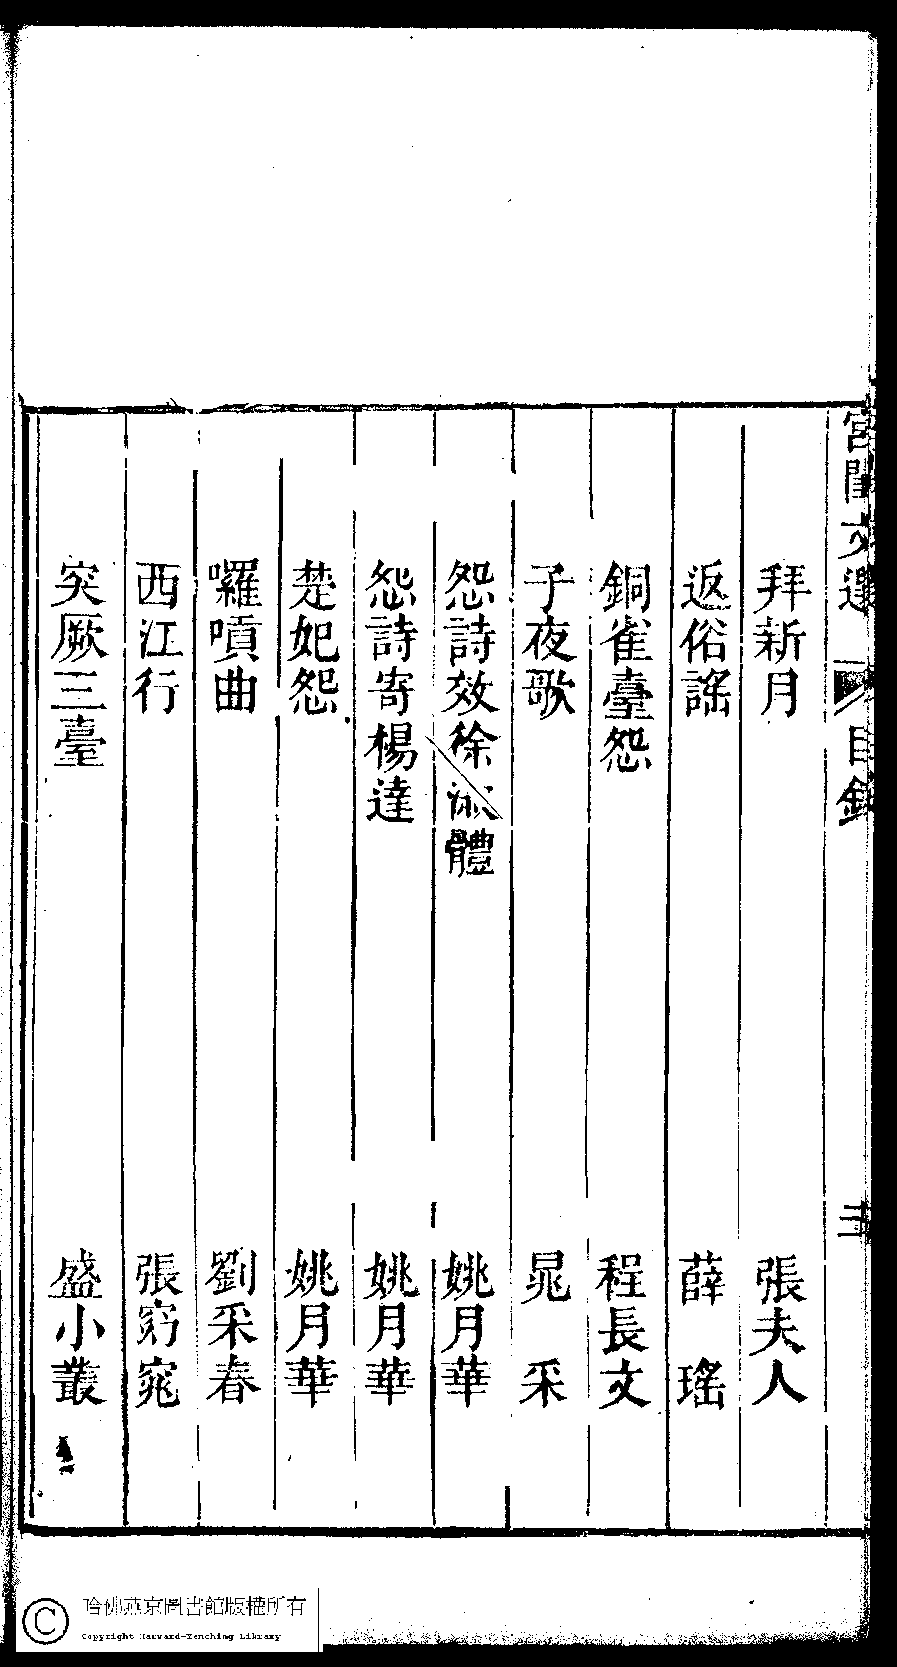 宮閨文選 目錄 三
拜新月 張夫人
返俗謠 薛瑤
銅雀臺怨 程長文
子夜歌 晁采
怨詩效徐淑體 姚月華
怨詩寄楊達 姚月華
楚妃怨 姚月華
囉嗊曲 劉采春
西江行 張窈窕
突厥三臺 盛小叢
哈佛燕京圖書館版權所有
Copyright Harvard-Yenching Library